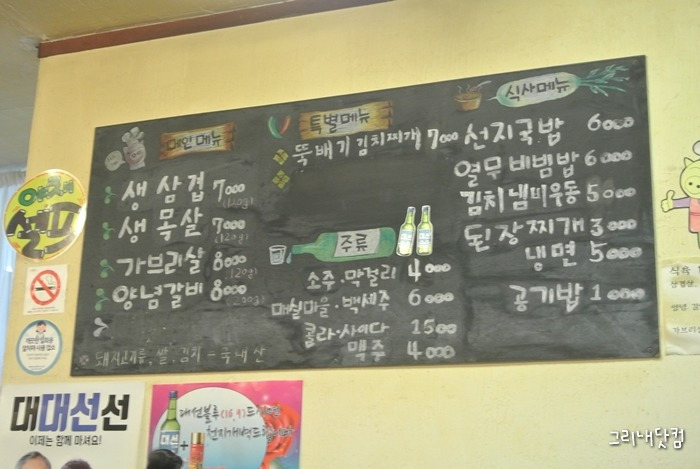 메인메뉴
생삼겹 7000
(120g)
생목살 7000
(120g)
가브리살 8000
(120g)
양념갈비 8000
(200g)
돼지고기류, 쌀, 김치 - 국내산
특별메뉴
뚝배기김치찌개 7000
주류
소주·막걸리 4000
매실마을·백세주 6000
콜라·사이다 1500
맥주 4000
식사메뉴
선지국밥 6000
열무비빔밥 6000
김치냄비우동 5000
된장찌개 3000
냉면 5000
공기밥 1000
셀프
대대선선
이제는 함께 마셔요!
대선
그리내닷컴